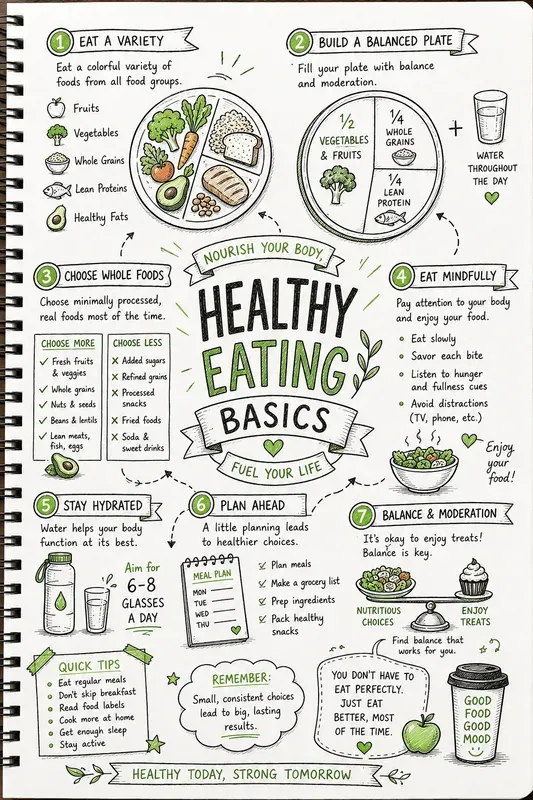 1 EAT A VARIETY
Eat a colorful variety of
foods from all food groups.
Fruits
Vegetables
Whole Grains
Lean Proteins
Healthy Fats
2 BUILD A BALANCED PLATE
Fill your plate with balance
and moderation.
1/2
VEGETABLES
& FRUITS
1/4
WHOLE
GRAINS
1/4
LEAN
PROTEIN
+
WATER
THROUGHOUT
THE DAY
NOURISH YOUR BODY,
HEALTHY
EATING
BASICS
FUEL YOUR LIFE
3 CHOOSE WHOLE FOODS
Choose minimally processed,
real foods most of the time.
CHOOSE MORE
✓ Fresh fruits
& veggies
✓ Whole grains
✓ Nuts & seeds
✓ Beans & lentils
✓ Lean meats,
fish, eggs
CHOOSE LESS
X Added sugars
X Refined grains
X Processed
snacks
X Fried foods
X Soda &
sweet drinks
4 EAT MINDFULLY
Pay attention to your body
and enjoy your food.
• Eat slowly
• Savor each bite
• Listen to hunger
and fullness cues
• Avoid distractions
(TV, phone, etc.)
Enjoy
your
food!
5 STAY HYDRATED
Water helps your body
function at its best.
Aim for
6-8
GLASSES
A DAY
6 PLAN AHEAD
A little planning leads
to healthier choices.
MEAL PLAN
MON
TUE
WED
THU
✓ Plan meals
✓ Make a grocery list
✓ Prep ingredients
✓ Pack healthy
snacks
7 BALANCE & MODERATION
It's okay to enjoy treats!
Balance is key.
NUTRITIOUS
CHOICES
ENJOY
TREATS
Find balance that
works for you.
QUICK TIPS
• Eat regular meals
• Don't skip breakfast
• Read food labels
• Cook more at home
• Get enough sleep
• Stay active
REMEMBER:
Small, consistent choices
lead to big, lasting
results.
YOU DON'T HAVE TO
EAT PERFECTLY.
JUST EAT
BETTER, MOST
OF THE TIME.
GOOD
FOOD
GOOD
MOOD
HEALTHY TODAY, STRONG TOMORROW